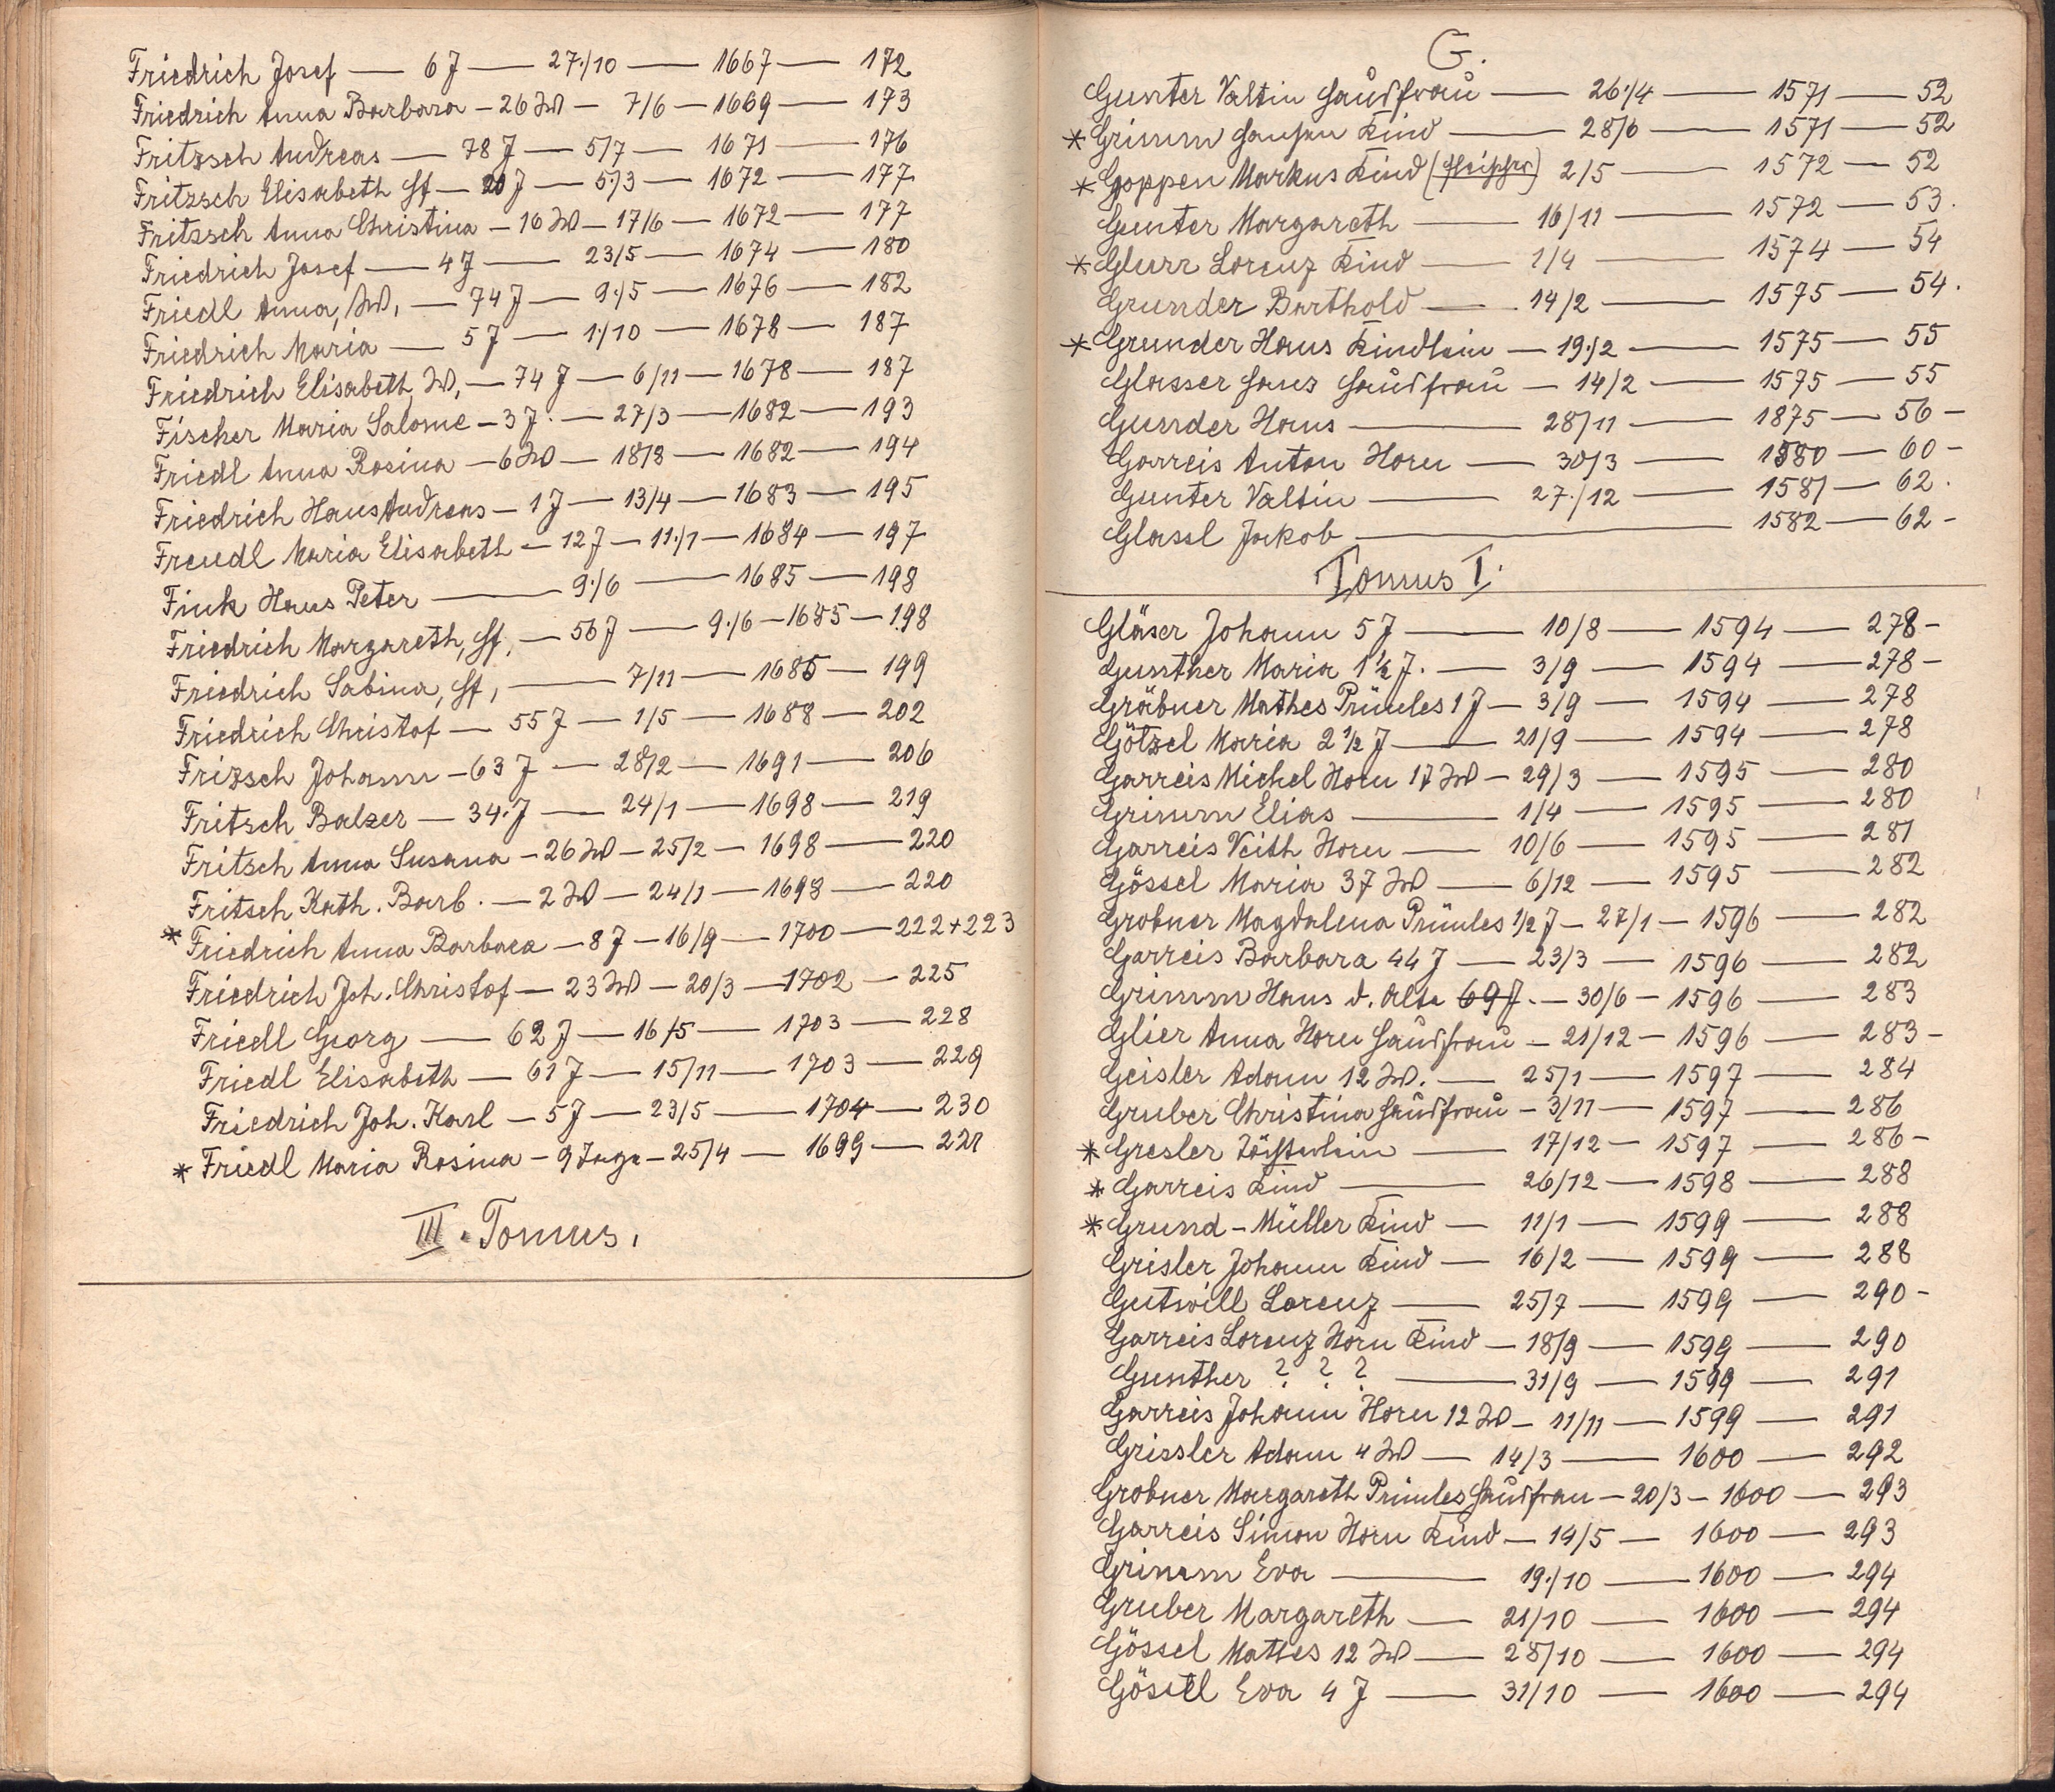 Friedrich Josef — 6 J — 27./10 — 1667 — 172
Friedrich Anna Barbara — 26 W — 7/6 — 1669 — 173
Fritzsch Andreas — 78 J — 5/7 — 1671 — 176
Fritzsch Elisabeth Hf — 20 J — 5./3 — 1672 — 177
Fritzsch Anna Christina — 16 W — 17/6 — 1672 — 177
Friedrich Josef — 4 J — 23/5 — 1674 — 180
Friedl Anna, W, — 74 J — 9./5 — 1676 — 182
Friedrich Maria — 5 J — 1./10 — 1678 — 187
Friedrich Elisabeth W, — 74 J — 6/11 — 1678 — 187
Fischer Maria Salome — 3 J. — 27/3 — 1682 — 193
Friedl Anna Rosina — 6 W — 18/8 — 1682 — 194
Friedrich Hans Andreas — 1 J — 13/4 — 1683 — 195
Freudl Maria Elisabeth — 12 J — 11./1 — 1684 — 197
Fink Hans Peter — 9./6 — 1685 — 198
Friedrich Margareth, Hf, — 56 J — 9./6 — 1685 — 198
Friedrich Sabina, Hf, — 7/11 — 1685 — 199
Friedrich Christof — 55 J — 1/5 — 1688 — 202
Frizsch Johann — 63 J — 28/2 — 1691 — 206
Fritsch Balzer — 34. J — 24/1 — 1698 — 219
Fritsch Anna Susana — 26 W — 25/2 — 1698 — 220
Fritsch Kath. Barb. — 2 W — 24/1 — 1698 — 220
* Friedrich Anna Barbara — 8 J — 16/9 — 1700 — 222+223
Friedrich Joh. Christof — 23 W — 20/3 — 1702 — 225
Friedl Georg — 62 J — 16/5 — 1703 — 228
Friedl Elisabeth — 61 J — 15/11 — 1703 — 229
Friedrich Joh. Karl — 5 J — 23/5 — 1704 — 230
* Friedl Maria Rosina — 9 Tage — 25/4 — 1699 — 221
III. Tomus.
G.
Gunter Valtin Hausfrau — 26./4 — 1571 — 52
* Grimm Hansen Kind — 28/6 — 1571 — 52
* Goppen Markus Kind — 2/5 — 1572 — 52
Gunter Margareth — 16/11 — 1572 — 53.
* Glurr Lorenz Kind — 1/4 — 1574 — 54
Grunder Barthold — 14/2 — 1575 — 54.
* Grunder Hans Kindlein — 19./2 — 1575 — 55
Glasser Hans Hausfrau — 14/2 — 1575 — 55
Gunder Hans — 28/11 — 1875 — 56 —
Garreis Anton Horn — 30/3 — 1580 — 60 —
Gunter Valtin — 27./12 — 1581 — 62.
Glassl Jakob — 1582 — 62 —
Tomus I.
Gläser Johann 5 J — 10/8 — 1594 — 278 —
Gunther Maria 1½ J. — 3/9 — 1594 — 278 —
Gräbner Mathes Prünles 1 J — 3/9 — 1594 — 278
Götzel Maria 2½ J — 21/9 — 1594 — 278
Garreis Michel Horn 17 W — 29/3 — 1595 — 280
Grimm Elias — 1/4 — 1595 — 280
Garreis Veith Horn — 10/6 — 1595 — 281
Gössel Maria 37 W — 6/12 — 1595 — 282
Grobner Magdalena Prünles ½ J — 27/1 — 1596 — 282
Garreis Barbara 44 J — 23/3 — 1596 — 282
Grimm Hans d. Alte 69 J. — 30/6 — 1596 — 283
Glier Anna Horn Hausfrau — 21/12 — 1596 — 283 —
Geisler Adam 12 W. — 25/1 — 1597 — 284
Gruber Christina Hausfrau — 3/11 — 1597 — 286
* Gresler Töchterlein — 17/12 — 1597 — 286 —
* Garreis Kind — 26/12 — 1598 — 288
* Grund-Müller Kind — 11/1 — 1599 — 288
Grisler Johann Kind — 16/2 — 1599 — 288
Gutwill Lorenz — 25/7 — 1599 — 290 —
Garreis Lorenz Horn Kind — 18/9 — 1599 — 290
Gunther ? ? ? — 31/9 — 1599 — 291
Garreis Johann Horn 12 W — 11/11 — 1599 — 291
Grissler Adam 4 W — 14/3 — 1600 — 292
Grobner Margareth Prünles Hausfrau — 20/3 — 1600 — 293
Garreis Simon Horn Kind — 14/5 — 1600 — 293
Grimm Eva — 19./10 — 1600 — 294
Gruber Margareth — 21/10 — 1600 — 294
Gössel Mattes 12 W — 28/10 — 1600 — 294
Gössel Eva 4 J — 31/10 — 1600 — 294